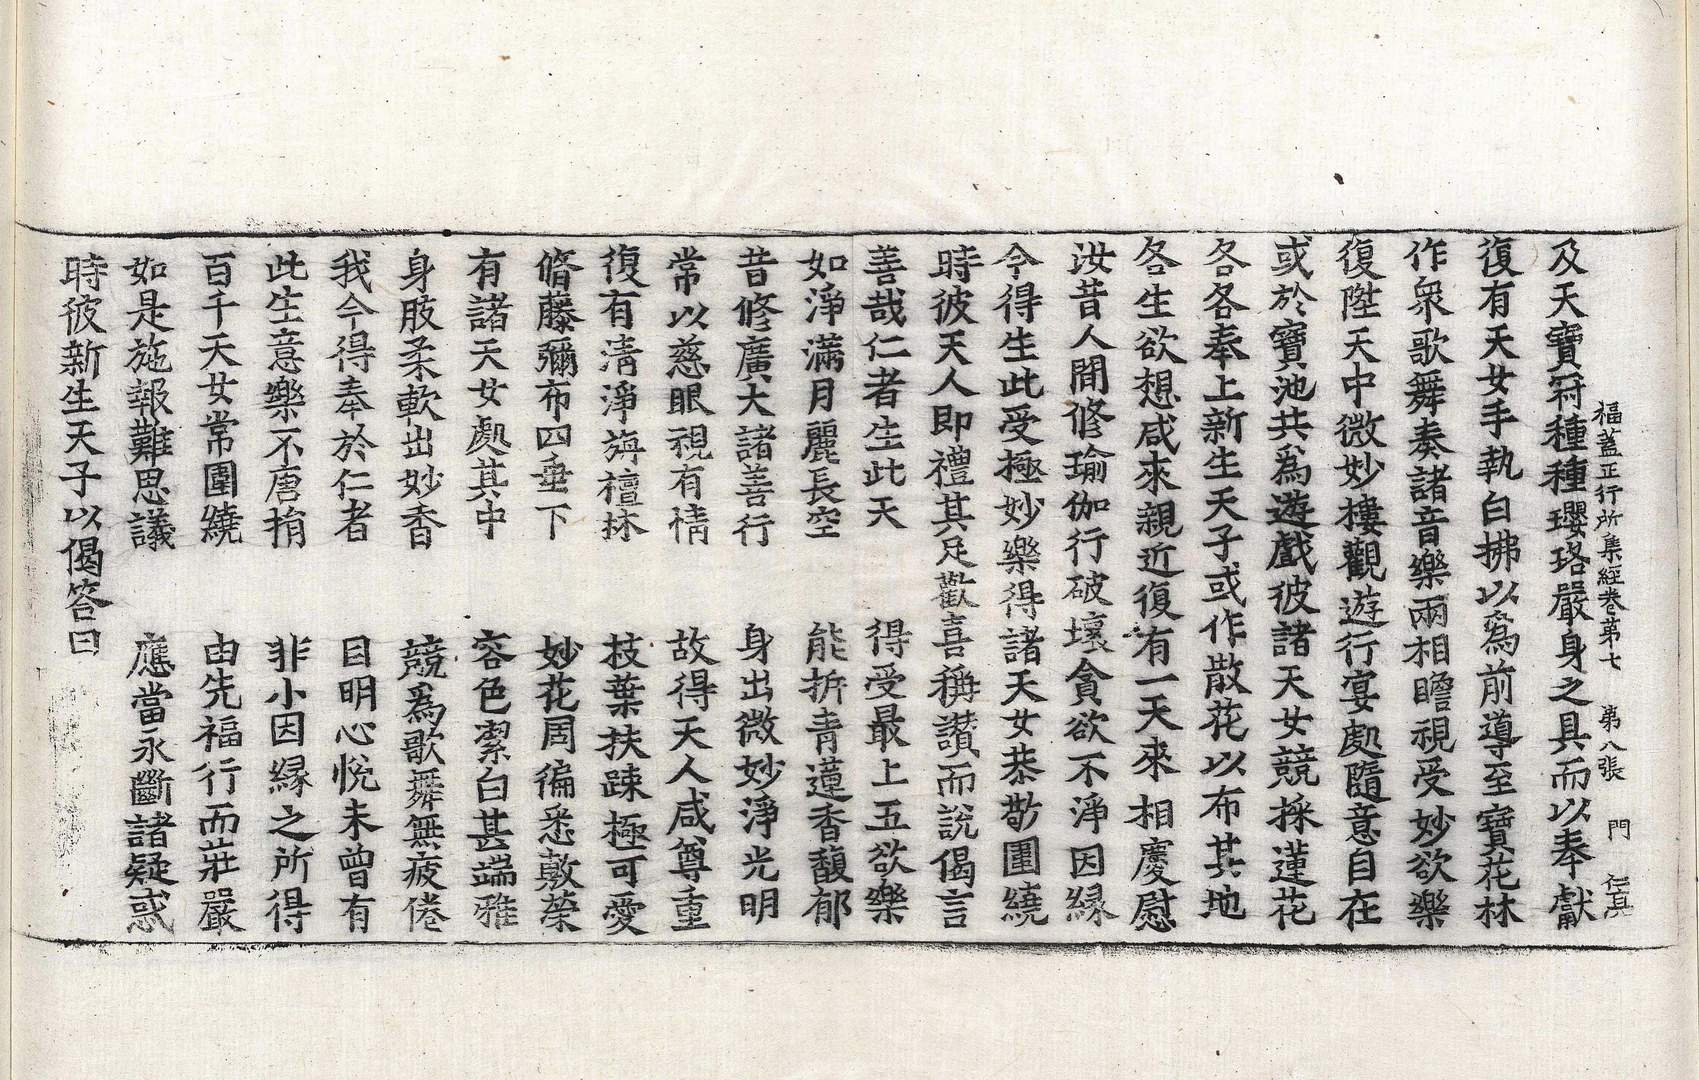 福蓋正行所集經卷第七　第八張　門　仁
及天寶符種種瓔珞嚴身之具而以奉獻
復有天女手執白拂以爲前導至寶花林
作衆歌舞奏諸音樂兩相瞻視受妙欲樂
復陞天中微妙樓觀遊行宴處隨意自在
或於寶池共爲遊戲彼諸天女競採蓮花
各各奉上新生天子或作散花以布其地
各生欲想咸來親近復有一天來相慶慰
汝昔人間修瑜伽行破壞貪欲不淨因緣
今得生此受極妙樂得諸天女恭敬圍繞
時彼天人即禮其足歡喜稱讚而說偈言
善哉仁者生此天　得受最上五欲樂
如淨滿月麗長空　能拆青蓮香馥郁
昔修廣大諸善行　身出微妙淨光明
常以慈眼視有情　故得天人咸尊重
復有清淨旃檀林　枝葉扶踈極可愛
脩藤彌布四垂下　妙花周徧悉敷榮
有諸天女處其中　容色潔白甚端雅
身肢柔軟出妙香　競爲歌舞無疲倦
我今得奉於仁者　目明心悅未曾有
此生意樂不唐捐　非小因緣之所得
百千天女常圍繞　由先福行而莊嚴
如是施報難思議　應當永斷諸疑惑
時彼新生天子以偈答曰